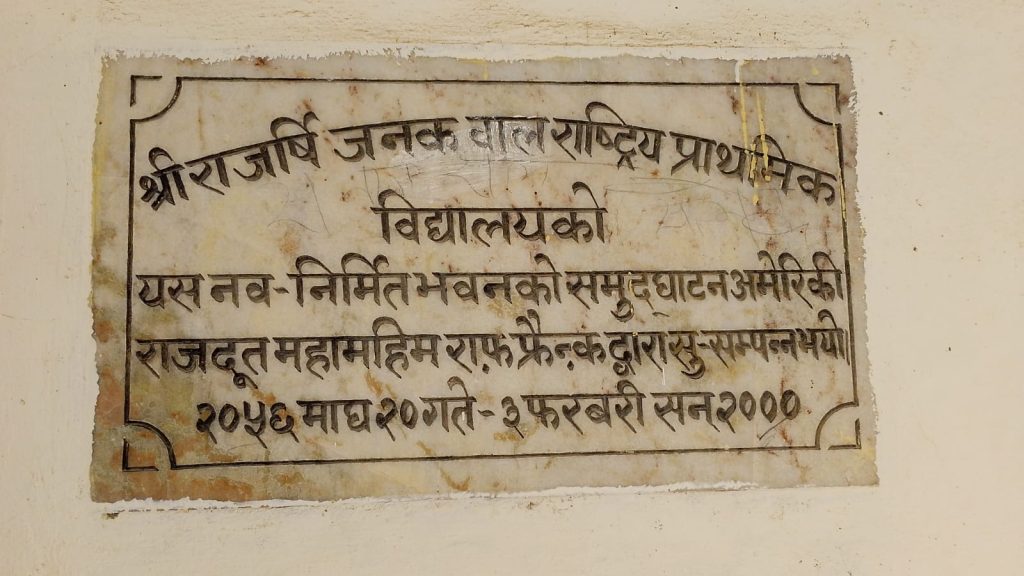 श्री राजर्षि जनक वाल राष्ट्रिय प्राथमिक
विद्यालयको
यस नव-निर्मित भवनको समुद्घाटन अमेरिकी
राजदूत महामहिम राफ़ फ्रैन्क़ द्वारा सु-सम्पन्न भयो।
२०५६ माघ २० गते - ३ फरबरी सन् २०००